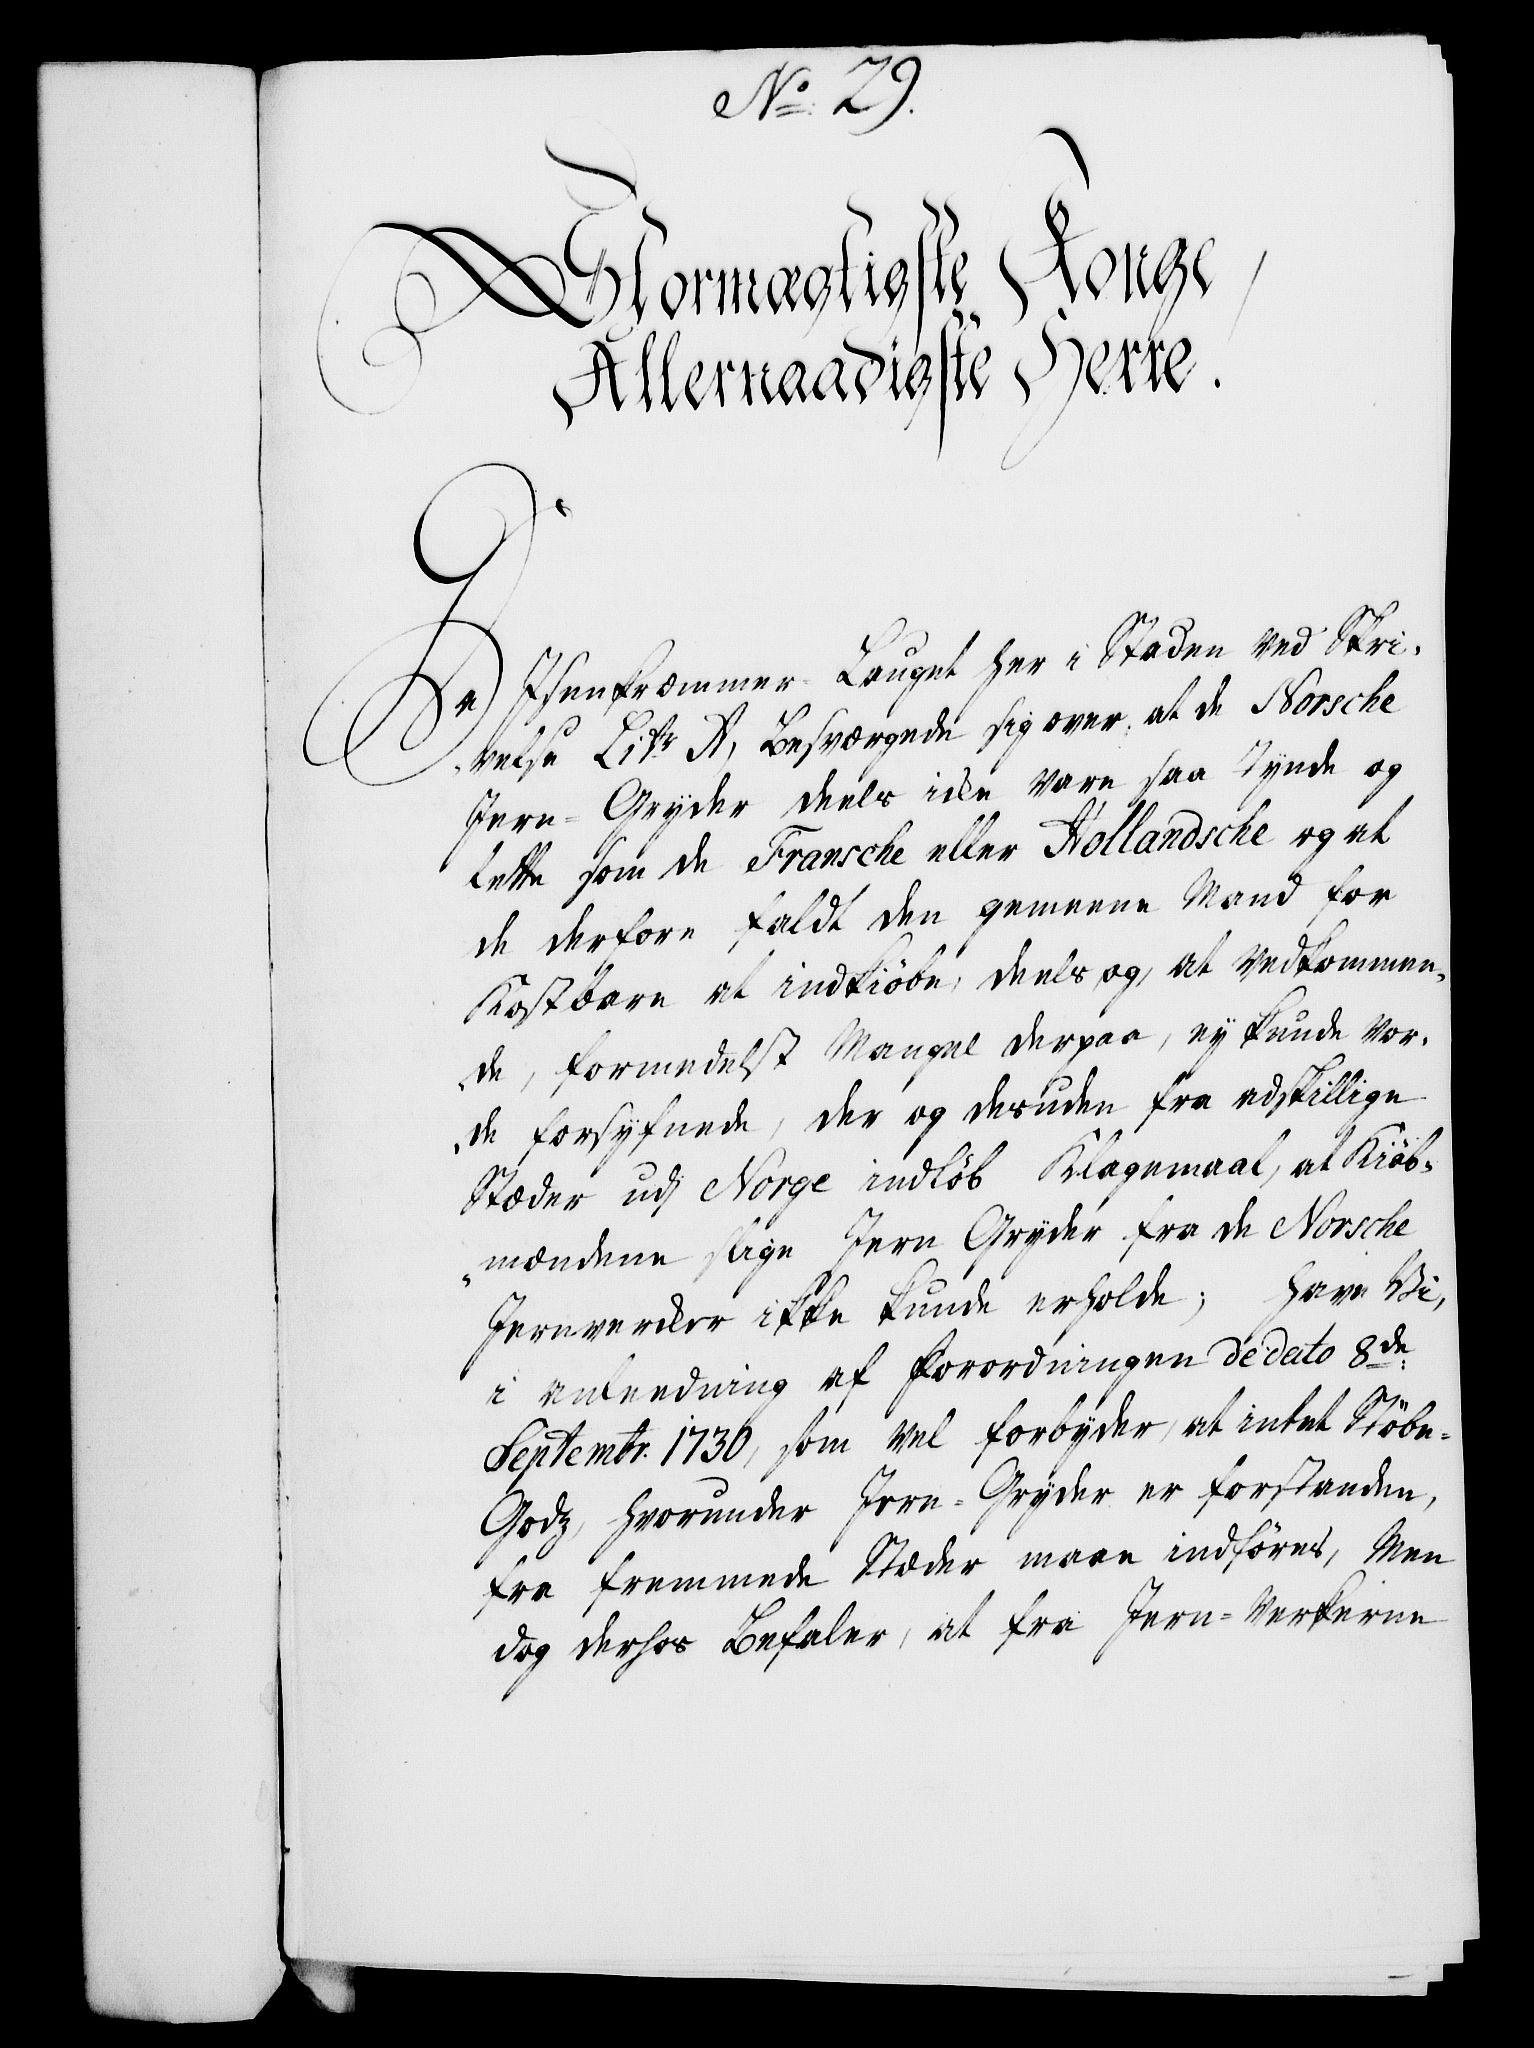 No: 29.
Stormægtigste Konge
Allernaadigste Herre!
Da Isenkræmmer-Lauget her i Staden ved Skri-
-velse Litr A, Besværgede sig over, at de Norsche
Jern-Gryder deels icke vare saa Tynde og
lette som de Fransche eller Hollandsche og at
de derfore faldt den gemeene Mand for
Kostbare at indkiöbe, deels og, at Vedkommen-
-de, formedelst Mangel derpaa, ey kunde vor-
-de forsÿfnede, der og desuden fra adskillige
Stæder udj Norge indlöb Klagemaal, at Kiöb-
-mændene slige Jern Gryder fra de Norsche
Jernvercker ikke kunde erholde; have Vi,
i anleedning af Forordningen de dato 8de
Septembr. 1730, som vel forbyder, at intet Stöbe-
Godz, hvorunder Jern-Gryder er forstanden,
fra fremmede Stæder maae indföres, Men
dog derhos Befaler, at fra Jern-Verkerne